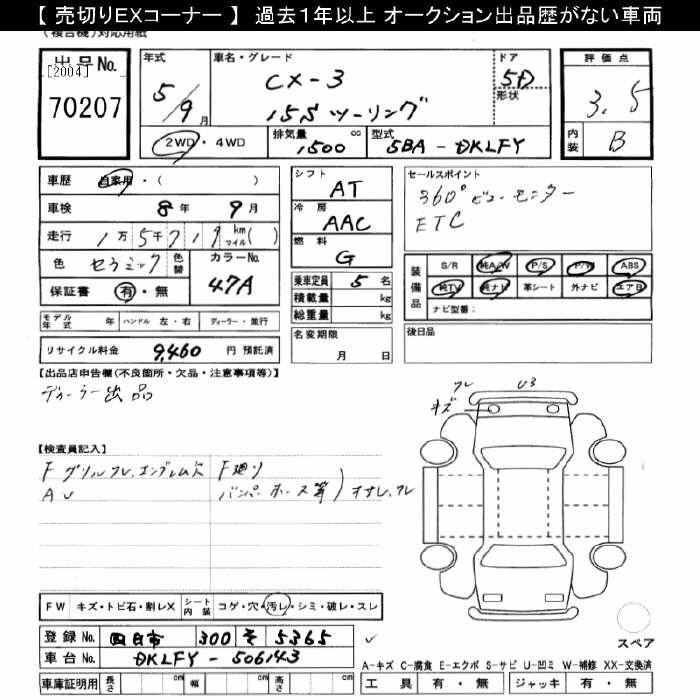 【 売切りEXコーナー 】 過去1年以上 オークション出品歴がない車両
(複合機)対応用紙
出品No.
[2004]
70207
年式
5/9月
車名・グレード
CX-3
15S ツーリング
ドア
5D
形状
評価点
3.5
内装
B
2WD・4WD
排気量
1500 cc
型式
5BA - DKLFY
車歴 自家用・( )
車検 8年 9月
走行 1万5千719 km マイル( )
色 セラミック 色替 カラーNo. 47A
保証書 有・無
シフト AT
冷房 AAC
燃料 G
乗車定員 5 名
積載量 kg
総重量 kg
セールスポイント
360°ビューモニター
ETC
装備品
S/R 純A/W P/S P/W ABS
純TV 純ナビ 革シート 外ナビ エアB
ナビ型番:
モデル年式 年 ハンドル 左・右 ディーラー・並行
名変期限
月 日
後日品
リサイクル料金 9,460 円 預託済
【出品店申告欄(不良箇所・欠品・注意事項等)】
ディーラー出品
フレ U3
キズ
【検査員記入】
Fグリルフレ、エンブレム欠
AU
F廻り
バンパーホース等
FW キズ・トビ石・割レX シート内装 コゲ・穴・汚レ・シミ・破レ・スレ
登録No. 四日市 300 そ 5365
車台No. DKLFY - 506143
車庫証明用 長さ cm 幅 cm 高さ cm
スペア
A-キズ C-腐食 E-エクボ S-サビ U-凹ミ W-補修 XX-交換済
工具 有・無 ジャッキ 有・無